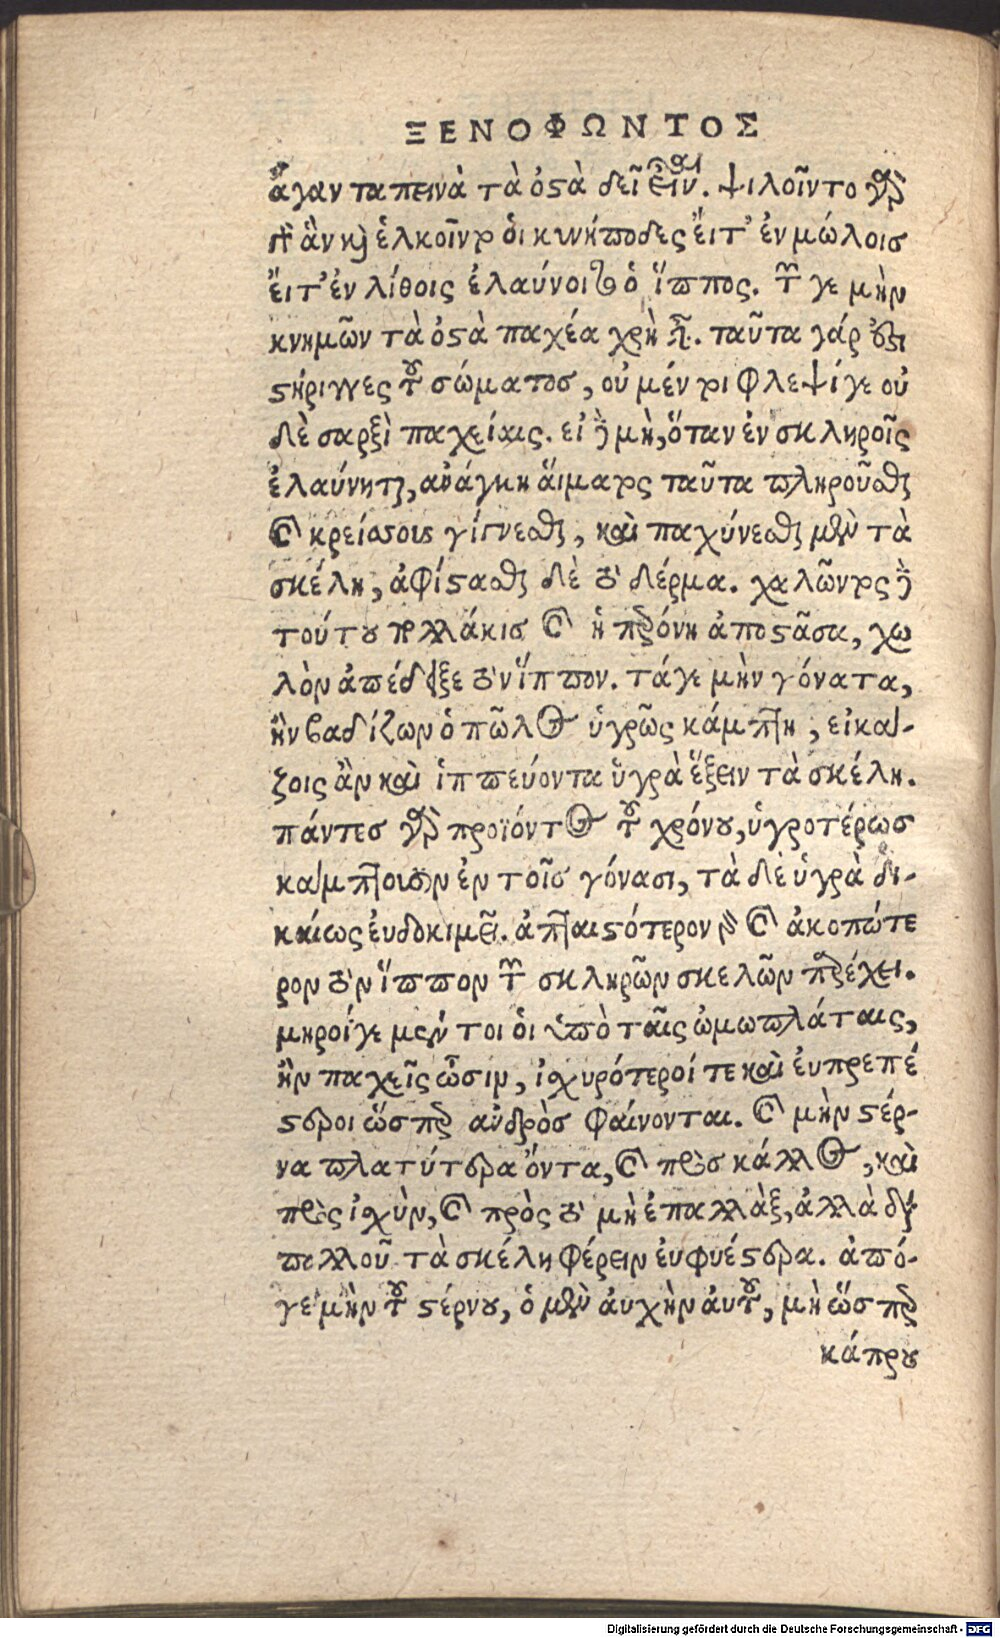 ΞΕΝΟΦΩΝΤΟΣ
ἄγαν ταπεινὰ τὰ ὀστὰ δεῖ εἶναι. ψιλοῖντο γὰρ
ἂν καὶ ἑλκοῖντο ὁι κυνήποδες ἔιτ' ἐν μώλοις
ἔιτ' ἐν λίθοις ἐλαύνοιτο ὁ ἵππος. τῶν γε μὴν
κνημῶν τὰ ὀστὰ παχέα χρὴ εἶναι. ταῦτα γάρ ἐστι
στήριγγες τοῦ σώματος, οὐ μέν τοι φλεψί γε οὐ
δὲ σαρξὶ παχείαις. εἰ δὲ μὴ, ὅταν ἐν σκληροῖς
ἐλαύνηται, ἀνάγκη ἅιματος ταῦτα πληροῦσθαι
καὶ κρείασους γίγνεσθαι, καὶ παχύνεσθαι μὲν τὰ
σκέλη, ἀφίστασθαι δὲ τὸ δέρμα. χαλῶντος δὲ
τούτου πολλάκις καὶ ἡ περόνη ἀποστᾶσα, χω
λὸν ἀπέδειξε τὸν ἵππον. τάγε μὴν γόνατα,
ἢν βαδίζων ὁ πῶλος ὑγρῶς κάμπτη, εἰκά-
ζοις ἂν καὶ ἱππεύοντα ὑγρὰ ἕξειν τὰ σκέλη.
πάντες γὰρ προϊόντος τοῦ χρόνου, ὑγροτέρως
κάμπτουσιν ἐν τοῖς γόνασι, τὰ δὲ ὑγρὰ δι-
καίως ἐυδοκιμεῖ. ἀπταιστότερον γὰρ καὶ ἀκοπώτε
ρον τὸν ἵππον τῶν σκληρῶν σκελῶν παρέχει.
μηροί γε μέν τοι ὁι ὑπὸ ταῖς ὠμωπλάταις,
ἢν παχεῖς ὦσιν, ἰσχυρότεροί τε καὶ ἐυπρεπέ
στεροι ὥσπερ ἀνδρὸς φαίνονται. καὶ μὴν στέρ-
να πλατύτερα ὄντα, καὶ πρὸς κάλλος, καὶ
πρὸς ἰσχὺν, καὶ πρὸς τὸ μὴ ἐπαλλὰξ, ἀλλὰ διὰ
πολλοῦ τὰ σκέλη φέρειν ἐυφυέστερα. ἀπό-
γε μὴν τοῦ στέρνου, ὁ μὲν ἀυχὴν ἀυτοῦ, μὴ ὥσπερ
κάπρου